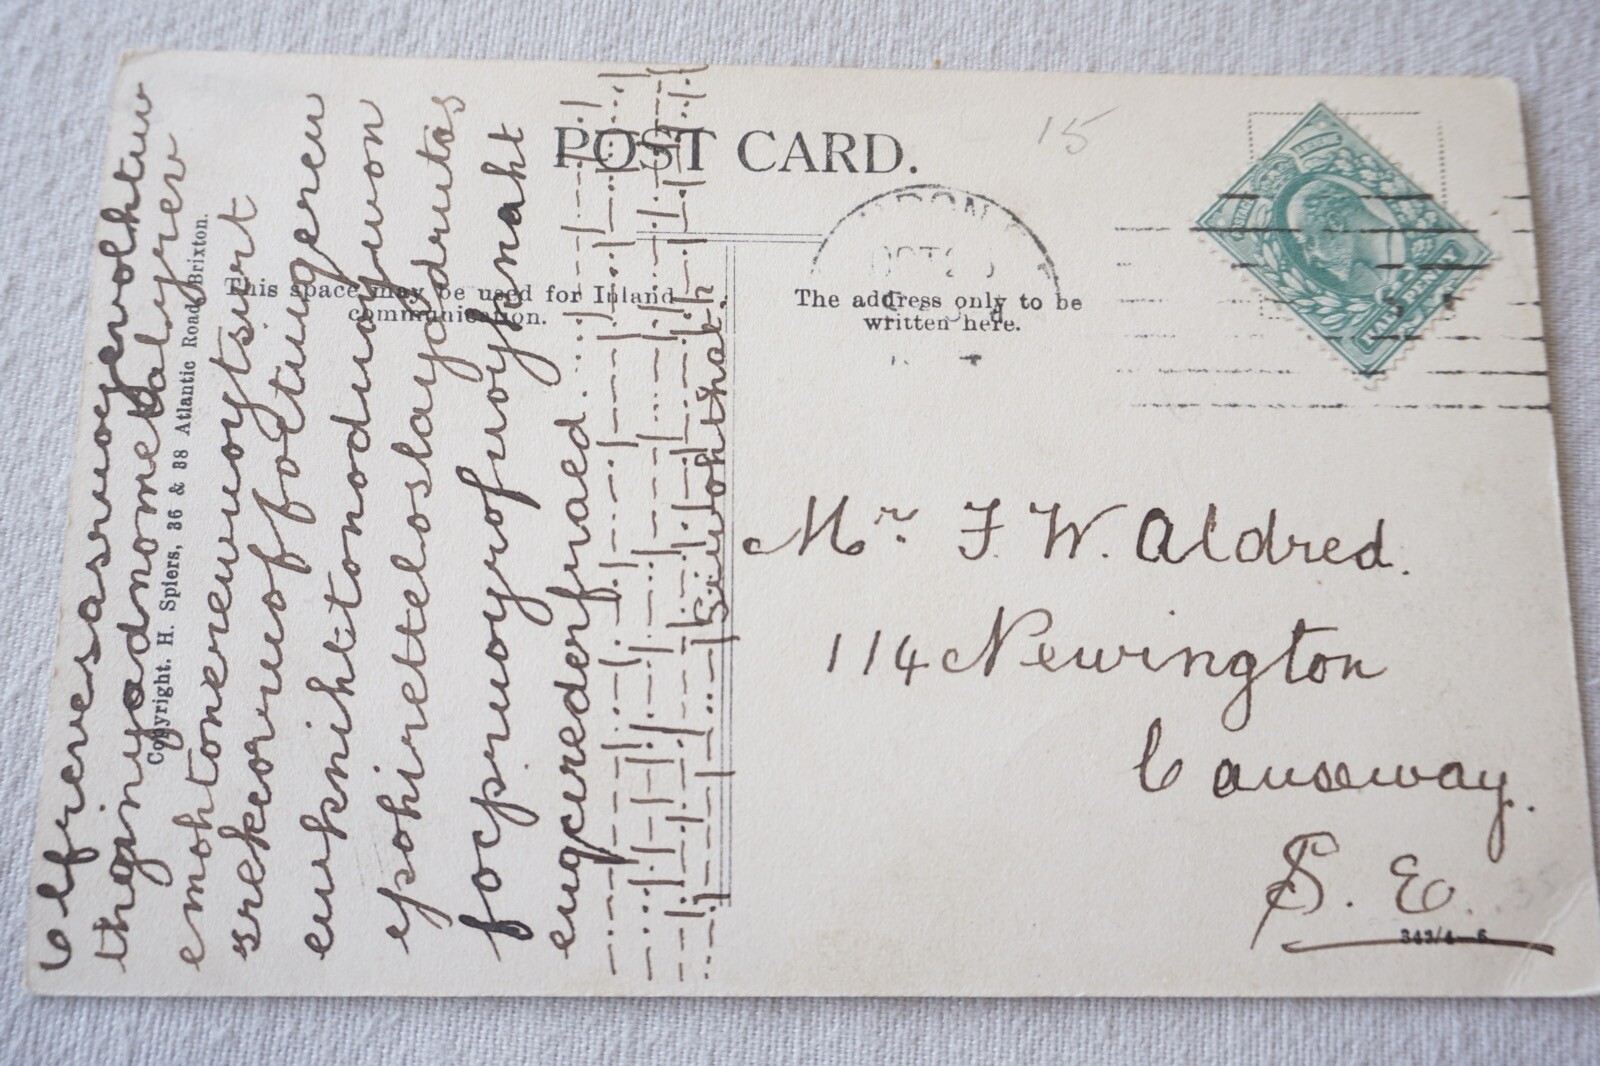 POST CARD.
15
This space may be used for Inland
communication.
The address only to be
written here.
Copyright. H. Spiers, 36 & 38 Atlantic Road, Brixton.
olfrevesasruoyevolhtiw
thginyadnometalyrev
emohtonerewuoytsirt
srekcoruoffoetiuqerew
ewknihttonoduoywon
epohiretteloslayadrutas
focpruoyrofuoyknaht
euqcirederfraed....
Mr. F. W. Aldred.
114 Newington
Causeway.
S. E.
OCT
HALF PENNY